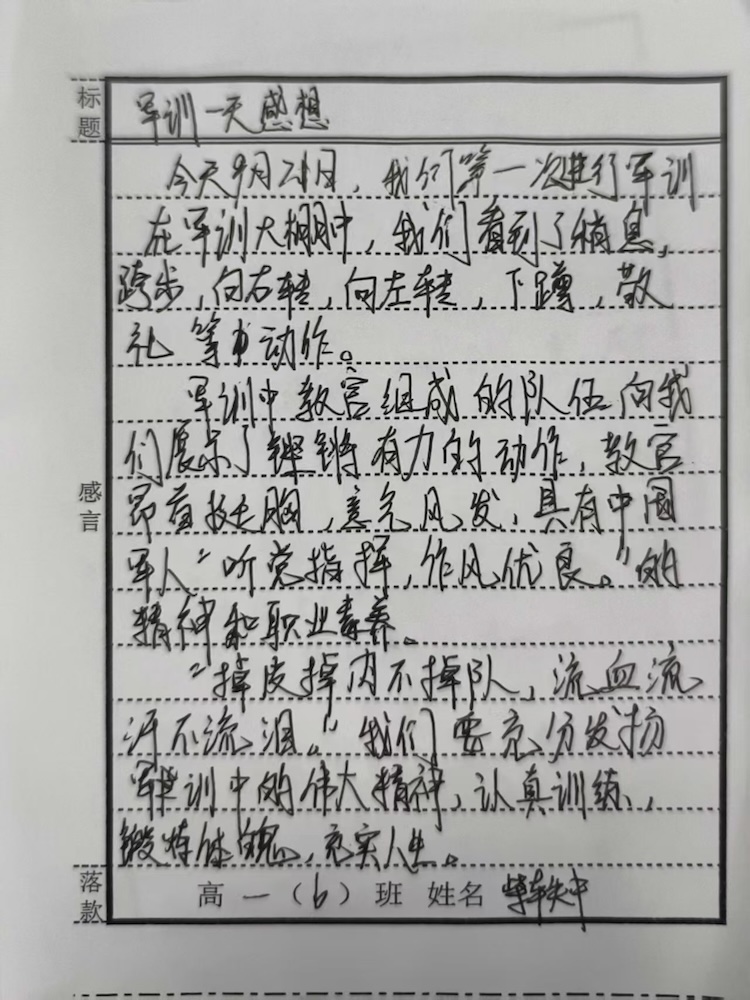 标题
军训一天感想
今天9月21日，我们第一次进行军训
在军训大棚中，我们看到了稍息，
跨步，向右转，向左转，下蹲，敬
礼等中动作。
军训中教官组成的队伍向我
们展示了铿锵有力的动作，教官
昂首挺胸，意气风发，具有中国
军人“听党指挥，作风优良。”的
精神和职业素养。
“掉皮掉肉不掉队，流血流
汗不流泪。”我们要充分发扬
军训中的伟大精神，认真训练，
锻炼体魄，充实人生。
感言
落款
高一（6）班 姓名